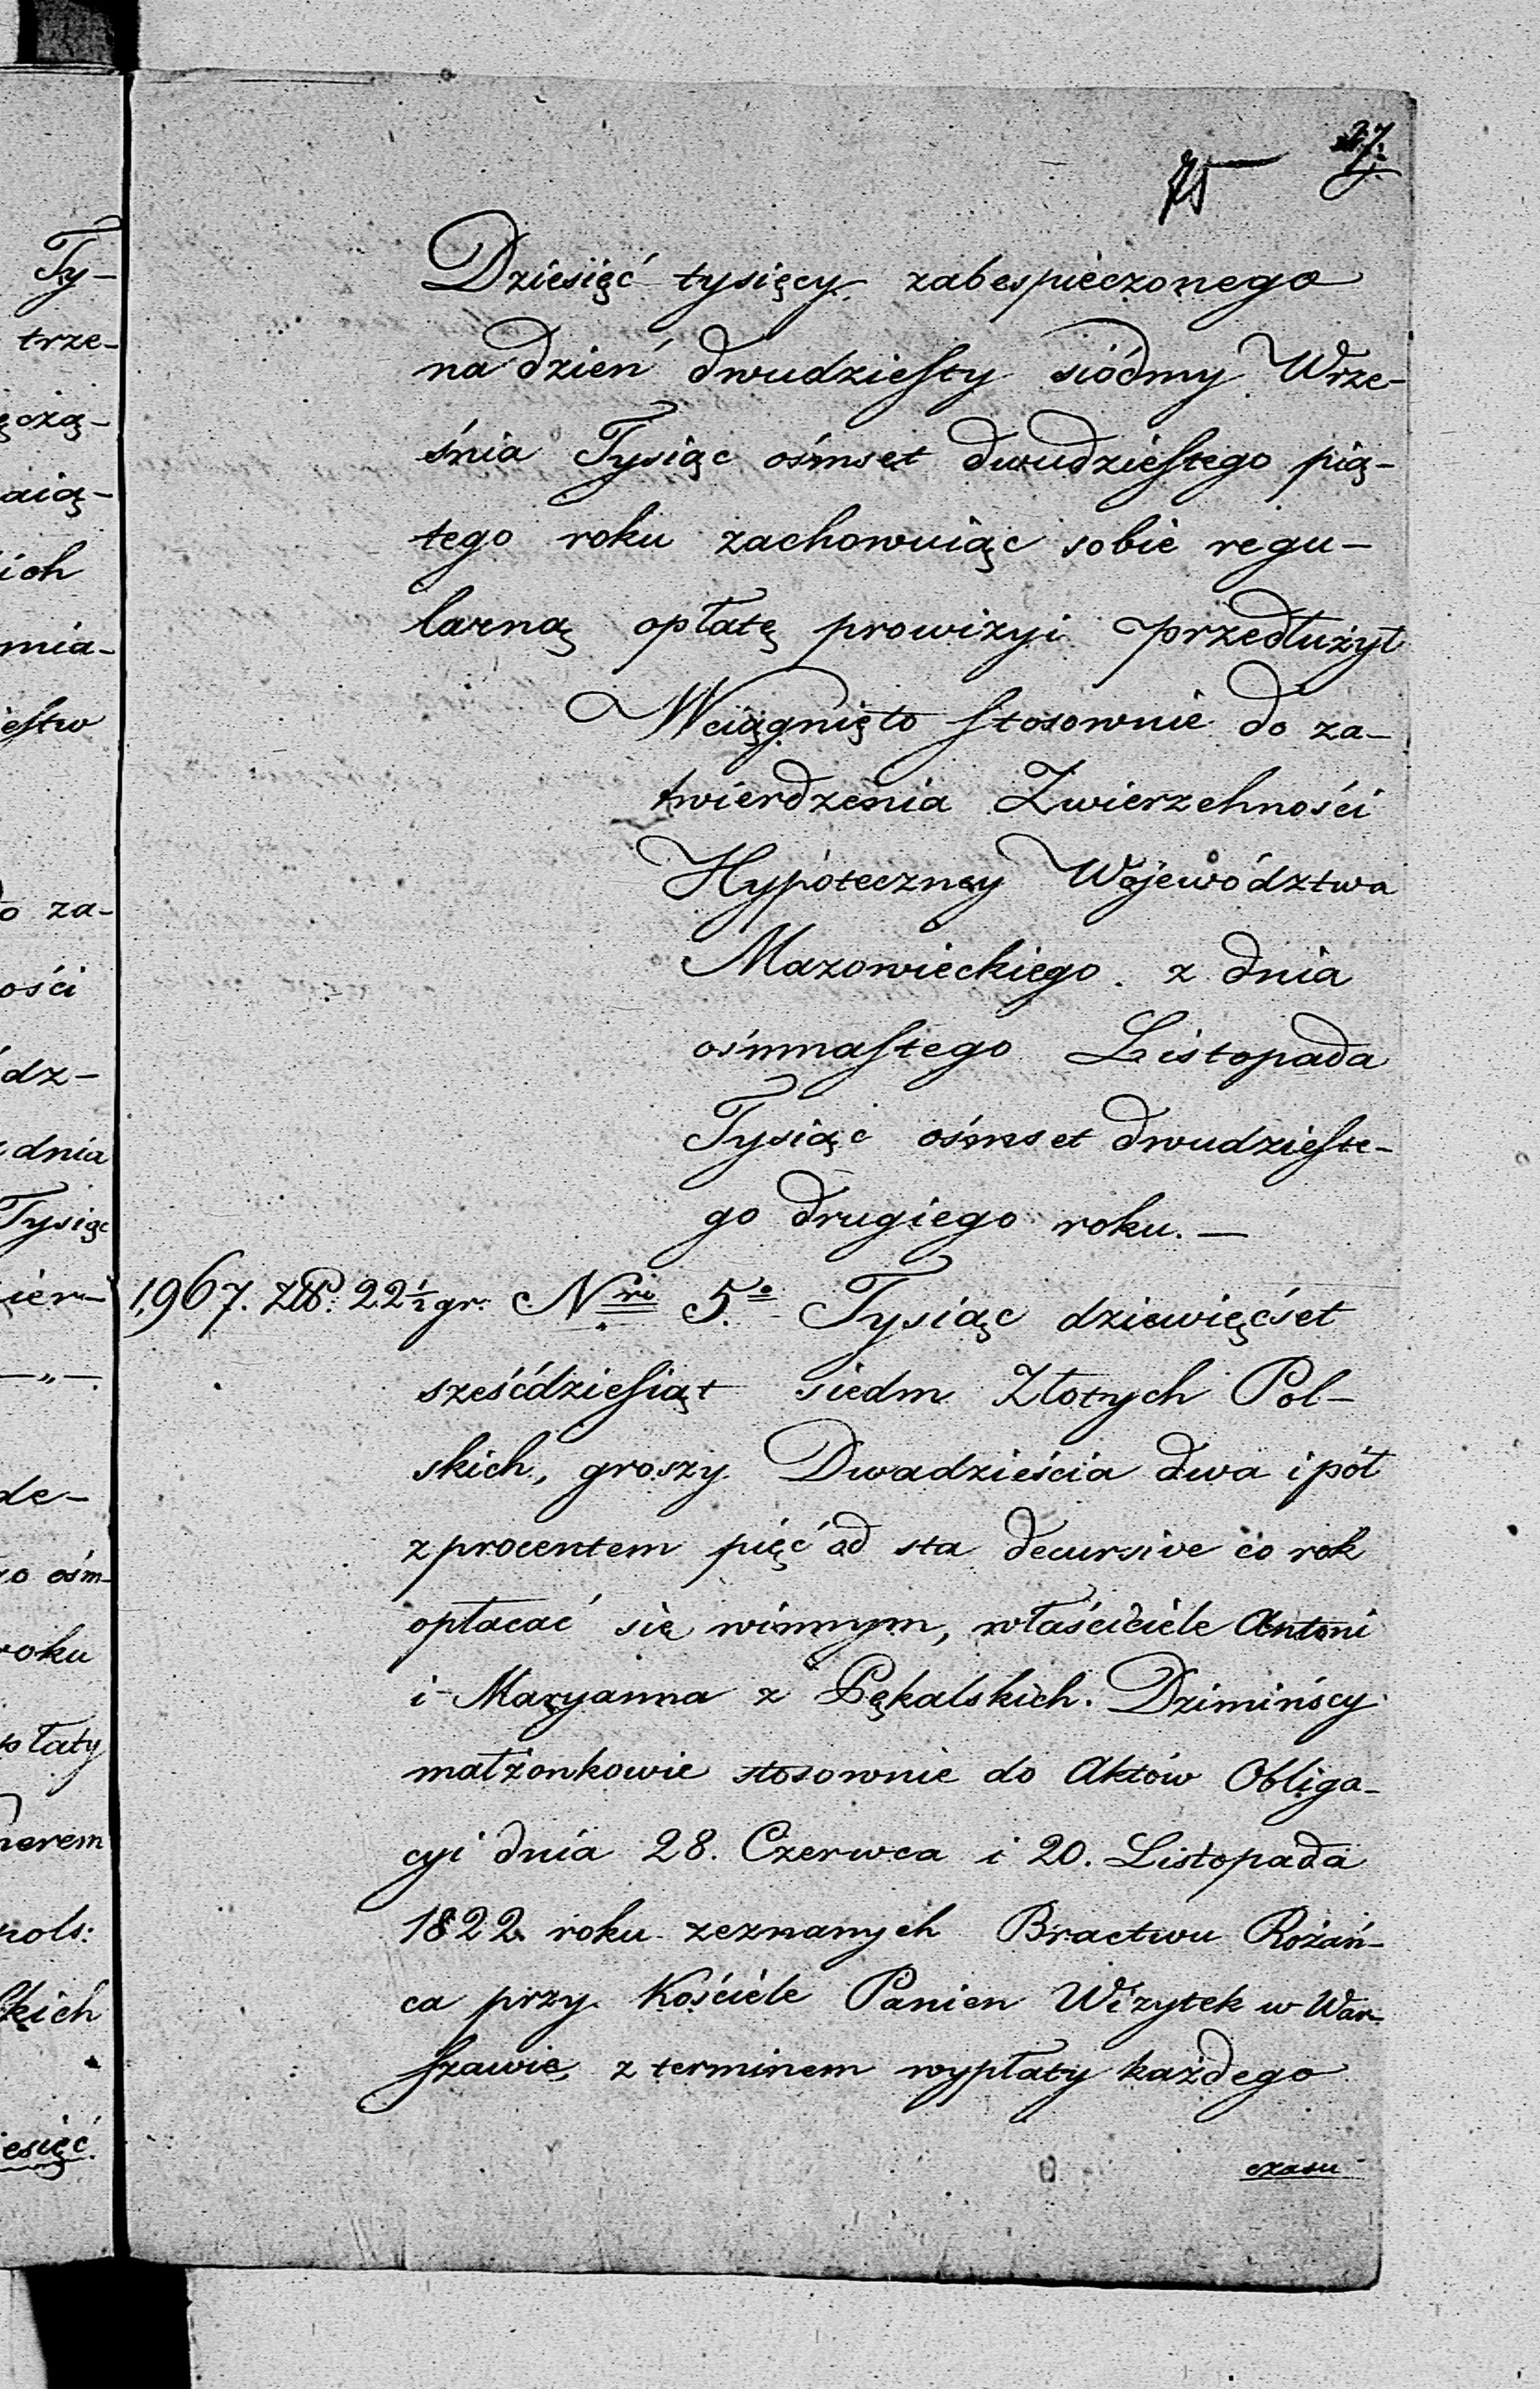 27.
75
Dziesięć tysięcy zabespieczonego
na dzień dwudziesty siódmy Wrze-
śnia Tysiąc ośmset dwudziestego pią-
tego roku zachowuiąc sobie regu-
larną opłatę prowizyi przedłużył
Wciągnięto stosownie do za-
twierdzenia Zwierzchności
Hypoteczney Województwa
Mazowieckiego z dnia
ośmnastego Listopada
Tysiąc ośmset dwudzieste-
go drugiego roku. —
1,967. ZłP: 22½ gr: Nri 5o Tysiąc dziewięćset
sześćdziesiąt siedm Złotych Pol-
skich, groszy Dwadzieścia dwa i pół
z procentem pięć od sta decursive co rok
opłacać się winnym, właściciele Antoni
i Maryanna z Pękalskich Dzimińscy
małżonkowie stosownie do Aktów Obliga-
cyi dnia 28. Czerwca i 20. Listopada
1822 roku zeznanych Bractwu Różań-
ca przy Kościele Panien Wizytek w War-
szawie, z terminem wypłaty każdego
czasu
Ty-
trze-
czą-
aią-
ich
mia-
estw
o za-
ości
ódz-
dnia
Tysiąc
ier-
—„—
de-
o ośm-
roku
płaty
nerem
pols:
skich
esięć